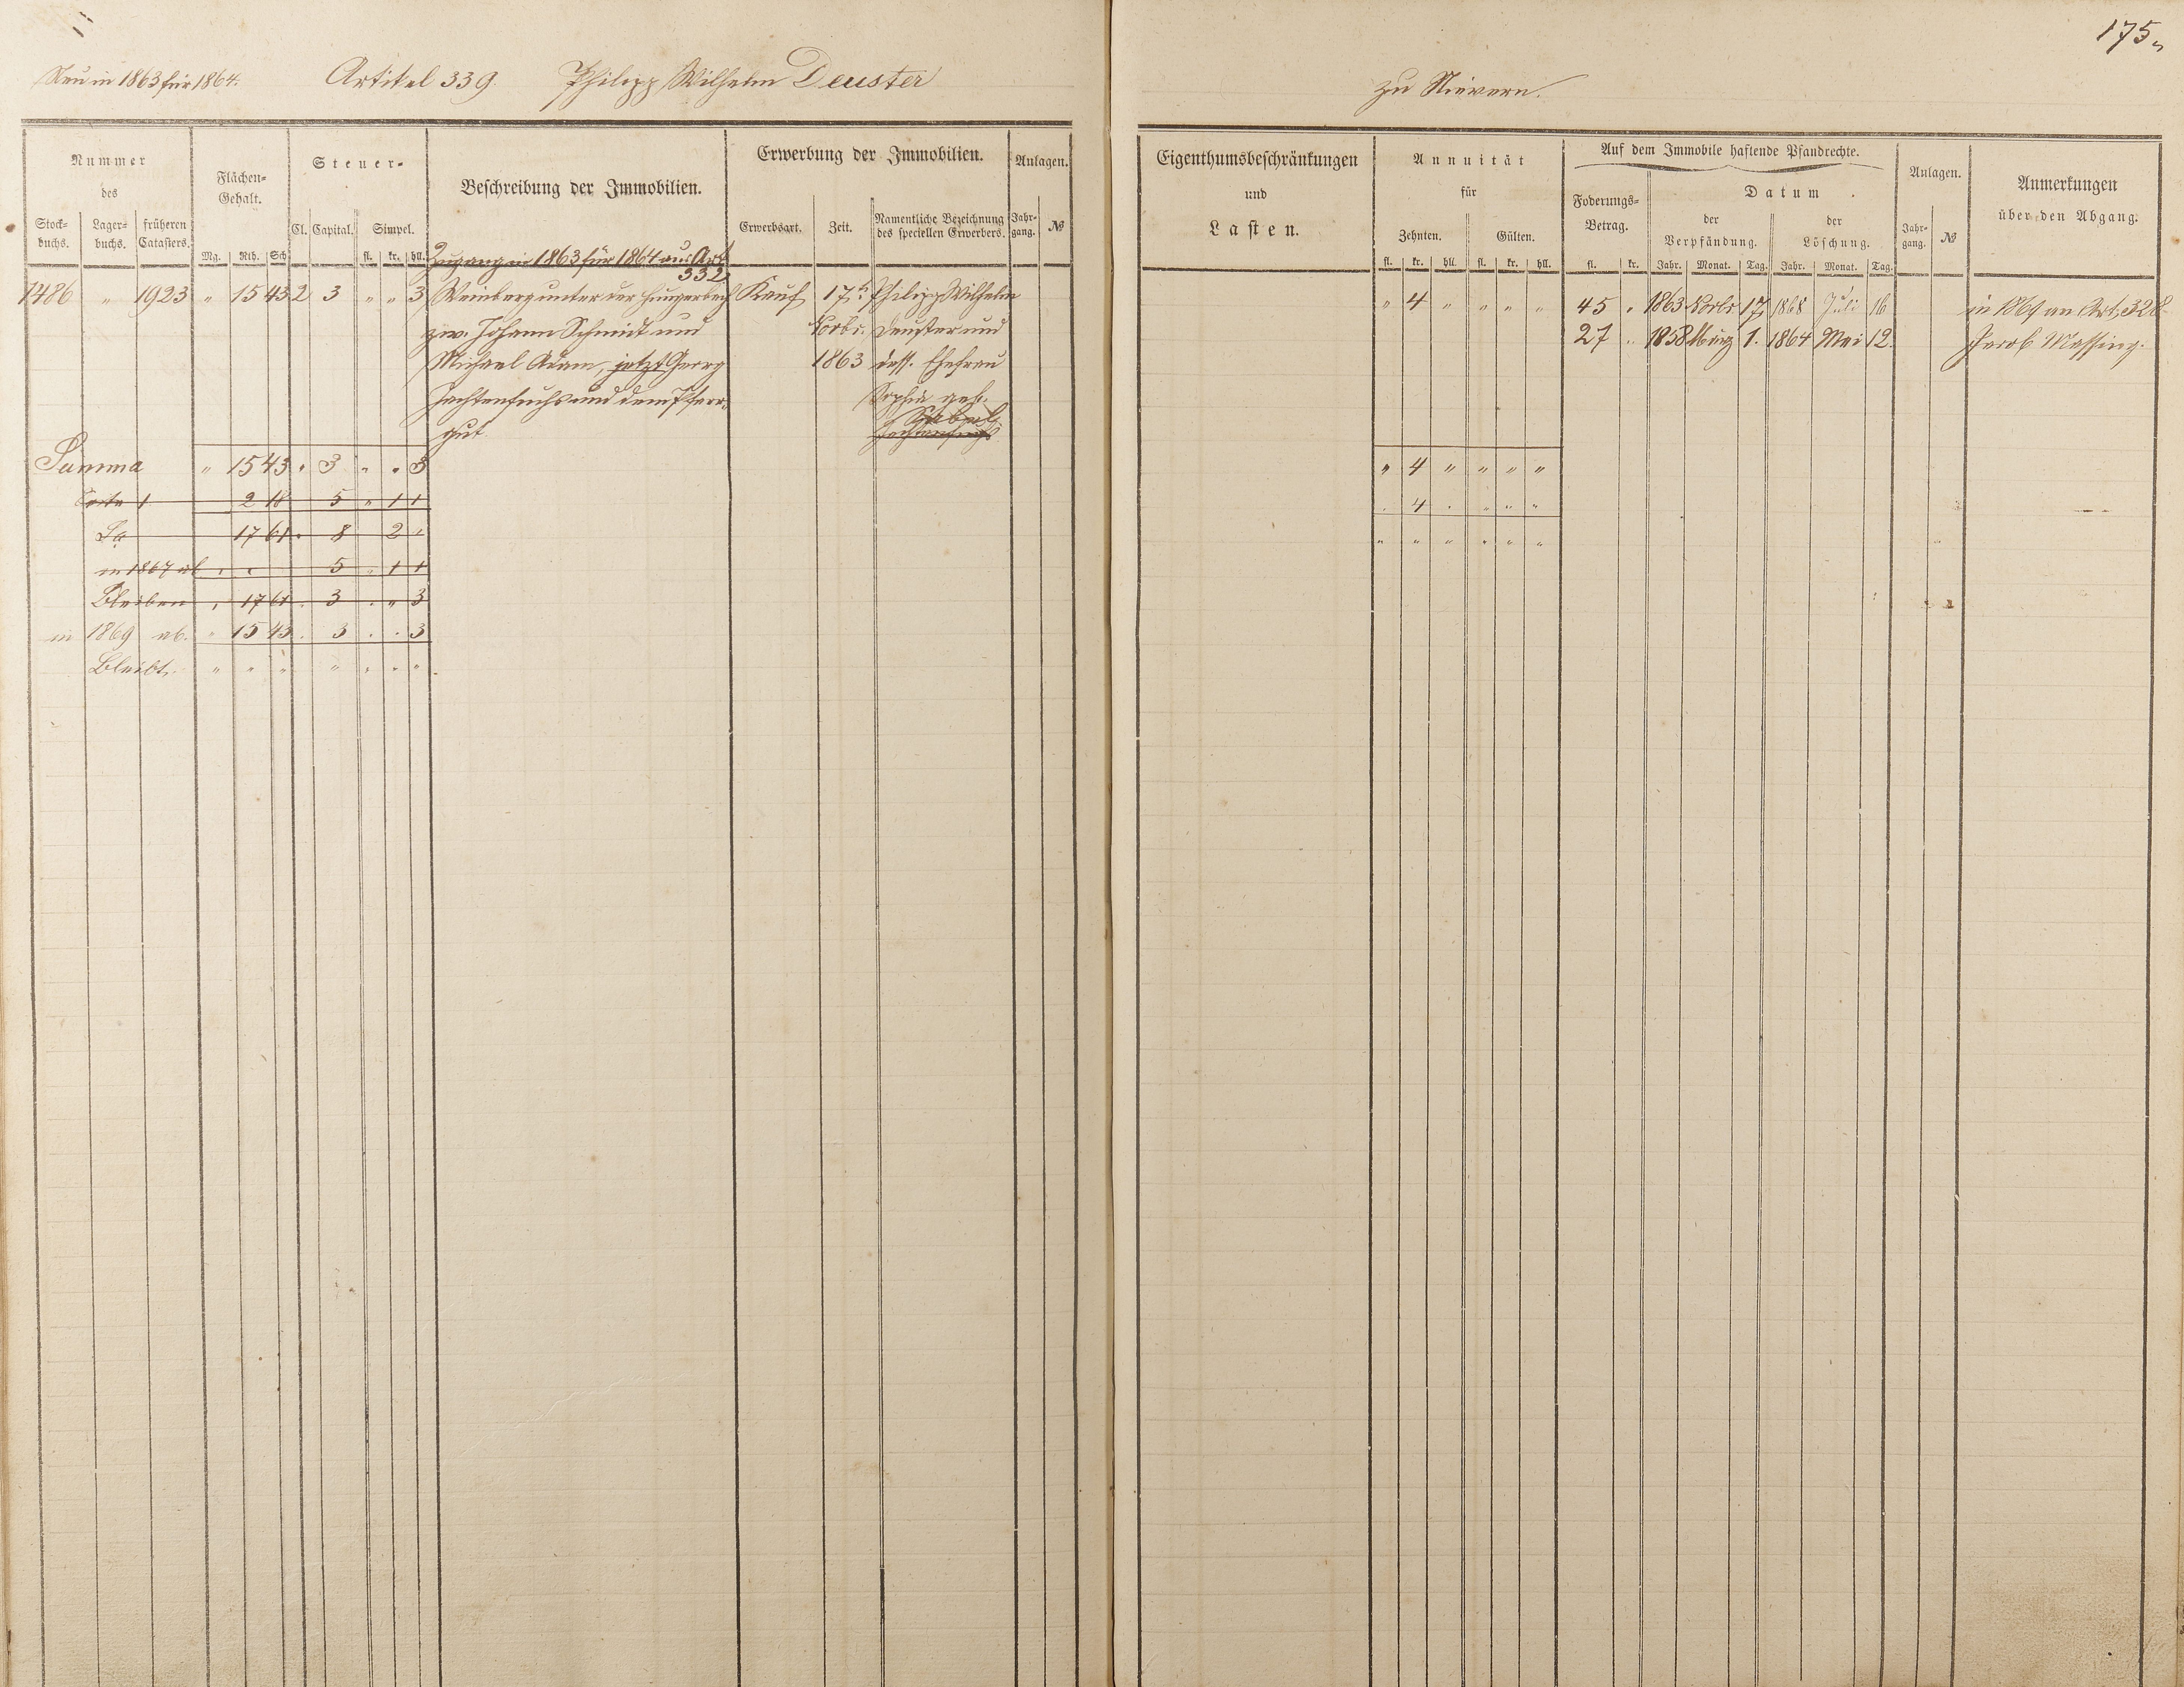 175.
Neu in 1863 für 1864. Artikel 339. Philipp Wilhelm Deuster zu Nievern.
Nummer
des
Stock-
buchs.
Lager-
buchs.
früheren
Catasters.
Flächen-
Gehalt.
Mg. Rth. Sch.
Steuer-
Cl. Capital. Simpel.
fl. kr. hll.
Beschreibung der Immobilien.
Erwerbung der Immobilien.
Erwerbsart. Zeit.
Namentliche Bezeichnung
des speciellen Erwerbers.
Anlagen.
Jahr-
gang.
№
Eigenthumsbeschränkungen
und
Lasten.
Annuität
für
Zehnten. Gülten.
fl. kr. hll. fl. kr. hll.
Auf dem Immobile haftende Pfandrechte.
Foderungs-
Betrag.
fl. kr.
Datum
der
Verpfändung.
der
Löschung.
Jahr. Monat. Tag. Jahr. Monat. Tag.
Anlagen.
Jahr-
gang.
№
Anmerkungen
über den Abgang.
Zugang in 1863 für 1864 aus Art.
332
1486 " 1923 " 15 43 2 3 " " 3
Weinberg unter der Hungerbach
zw. Johann Schmidt und
Michael Adam, jetzt Georg
Fachtenfuchs und dem Pfarr-
gut
Kauf
17.
Novbr.
1863
Philipp Wilhelm
Deuster und
dess. Ehefrau
Sophia geb.
" 4 " " " "
45 " 1863 Novbr 17 1868 Juli 16
27 " 1858 März 1. 1864 Mai 12.
in 1869 an Art. 328
Jacob Massing.
Summa " 15 43 . 3 " . 3
" 4 " " " "
Seite 1 2 18 5 " 1 1
. 4 . " " "
Sa 17 61 . 8 2 "
" " " " " "
in 1867 ab . . 5 " 1 1
Bleiben , 17 61 . 3 . " 3
in 1869 ab. " 15 43 . 3 . . 3
Bleibt. " " " " " " "